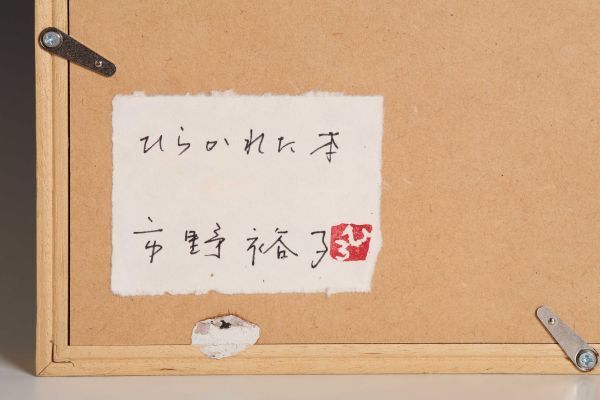 ひらかれた本
市野裕子